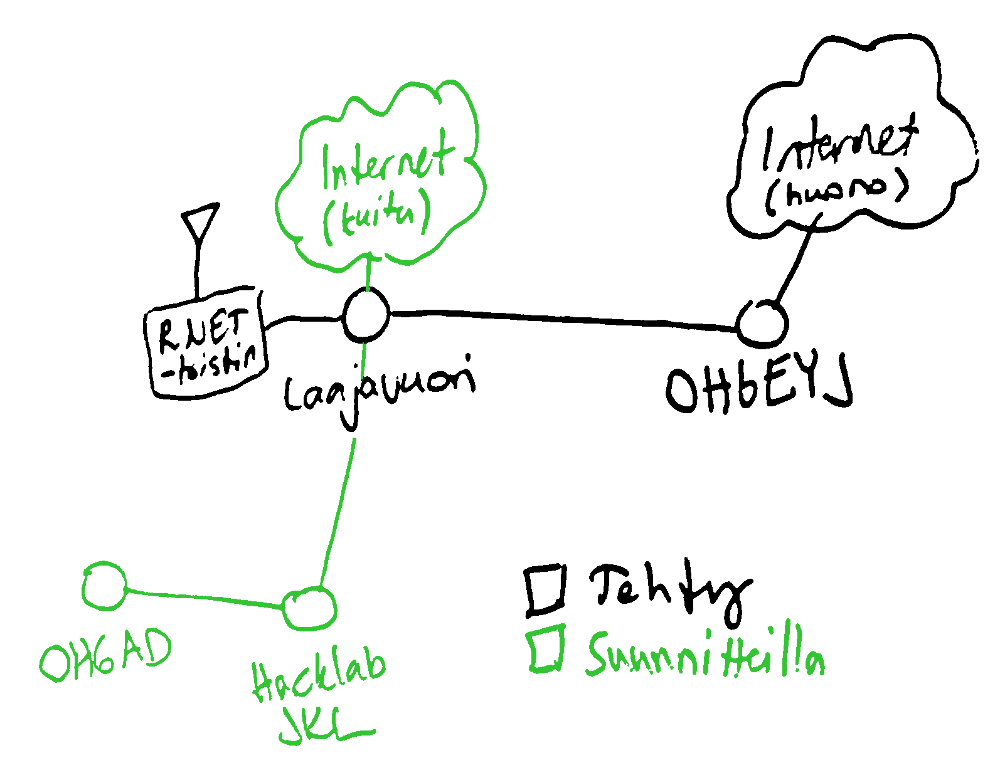 Internet
(kuitu)
Internet
(huono)
RNET
-toistin
Laajavuori
OH6EYJ
OH6AD
Hacklab
JKL
Tehty
Suunnitteilla